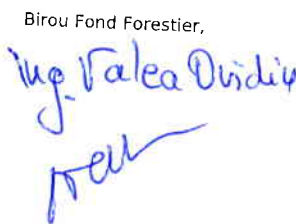 Birou Fond Forestier,
ing. Valea Ovidiu